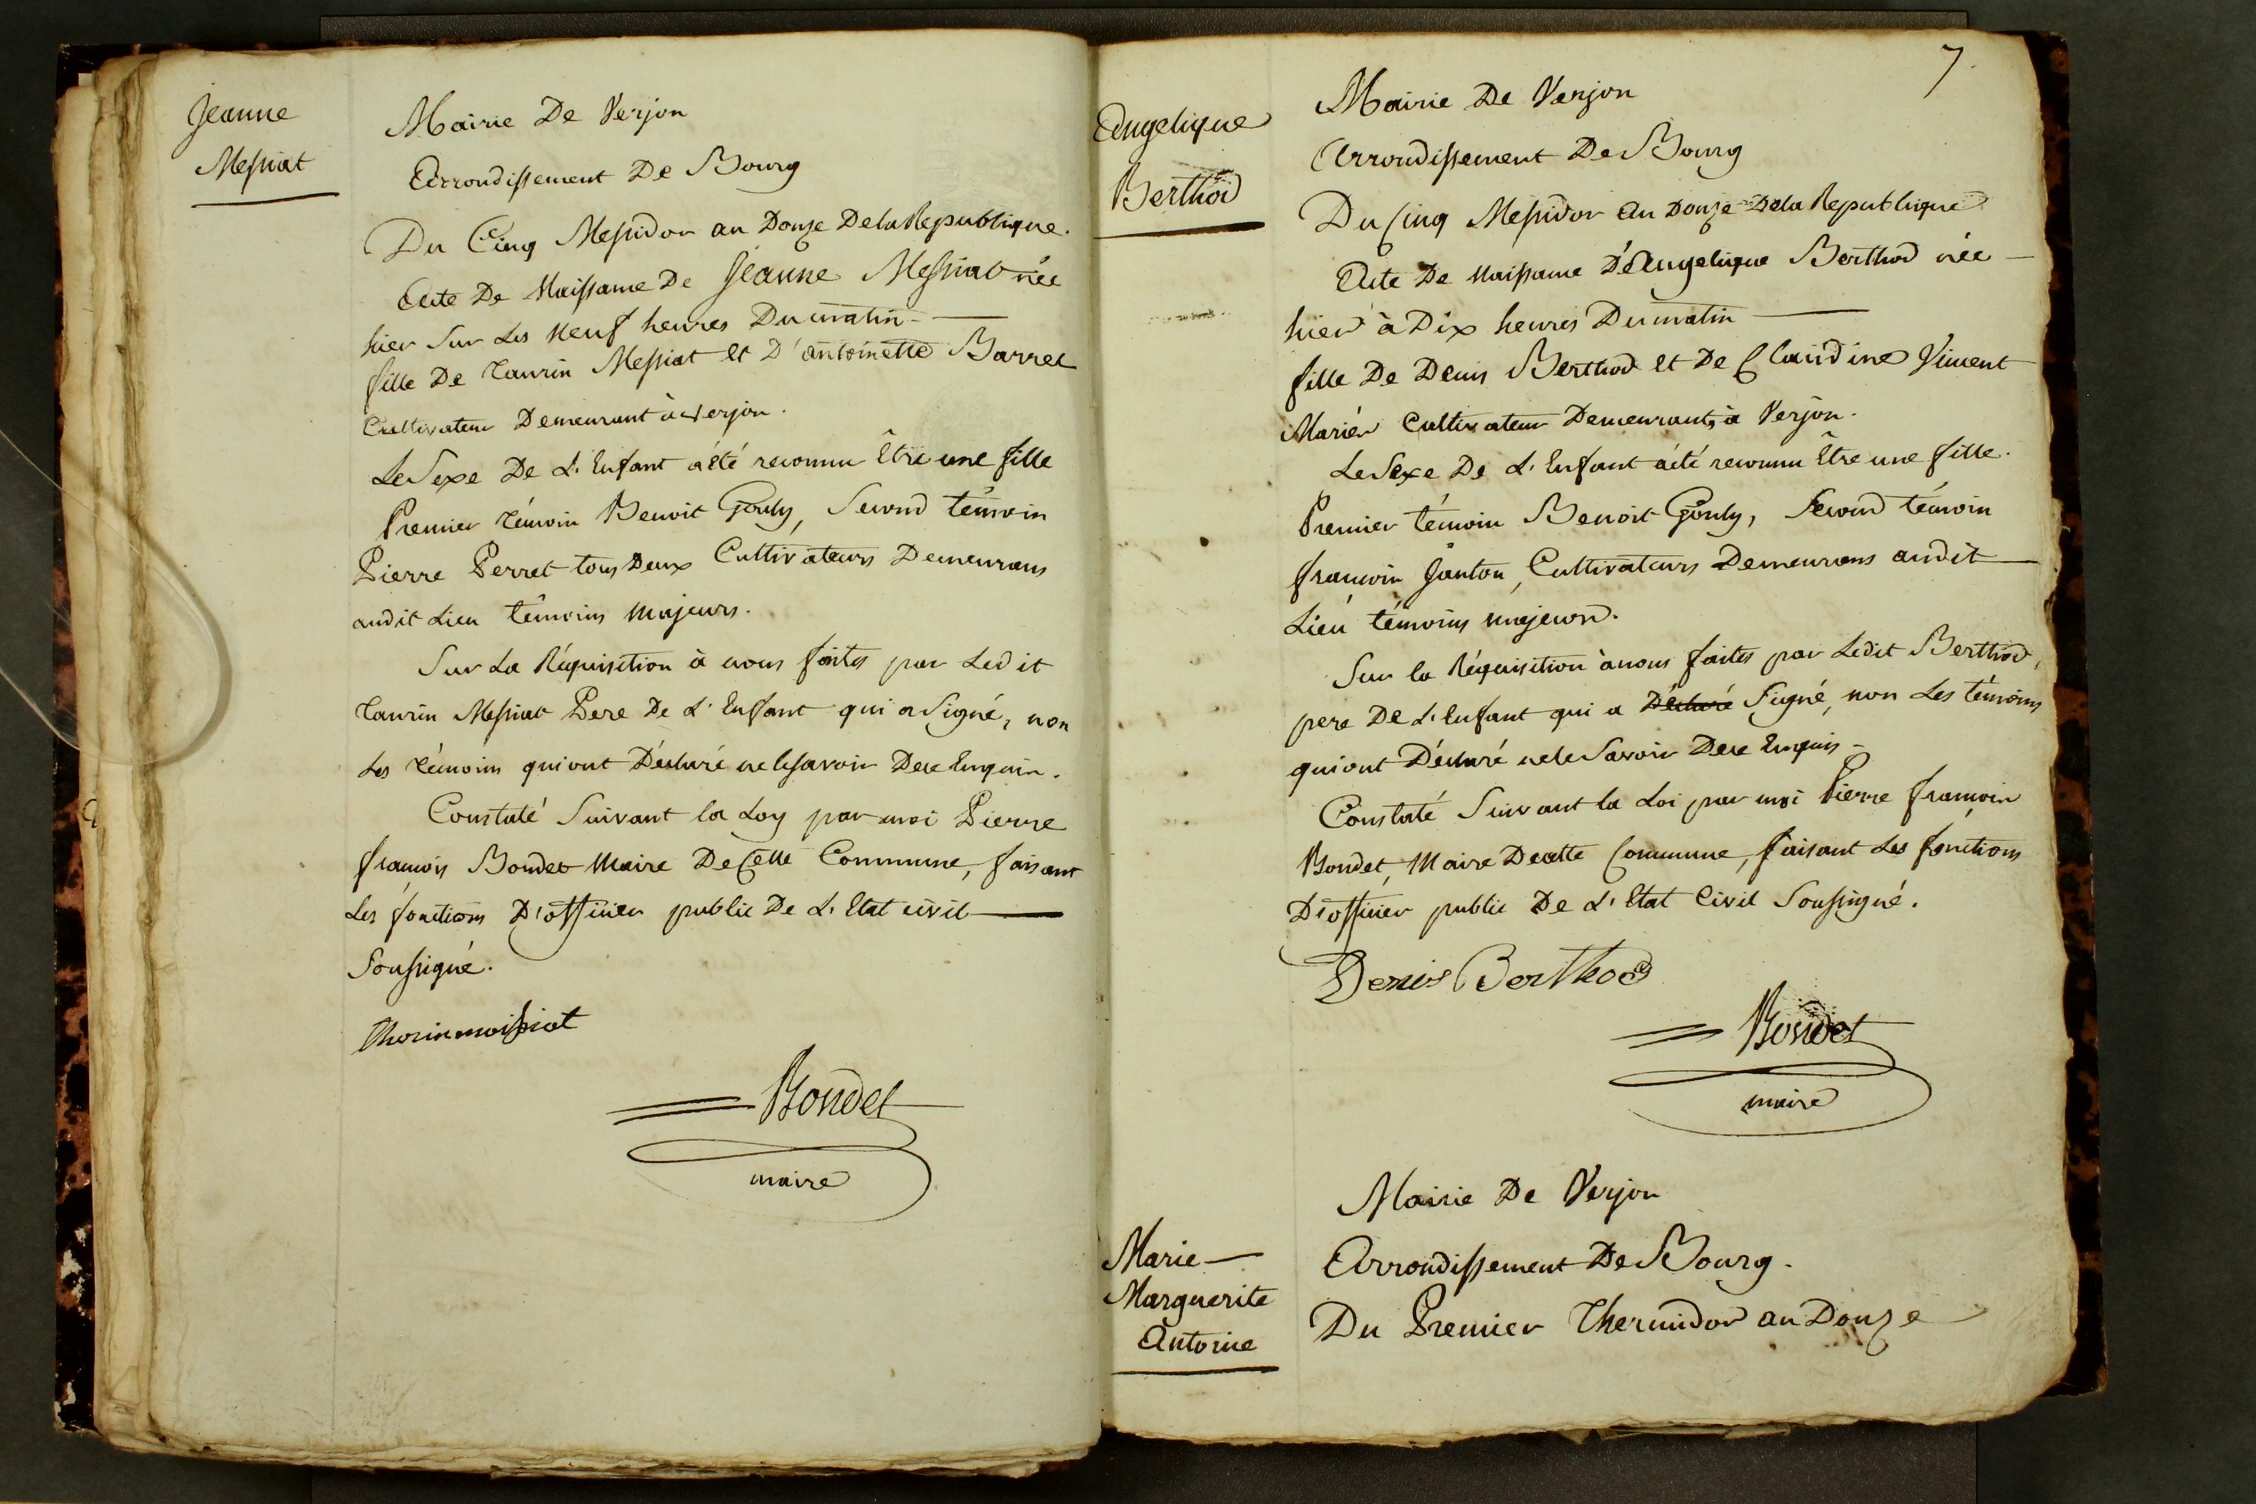 Jeanne
Messiat
Mairie De Verjon
Arrondissement De Bourg
Du Cinq Messidor an Douze De la Republique.
Acte De Naissance De Jeanne Messiat née
hier Sur Les Neuf heures Du matin
fille De Taurin Messiat et D'antoinette Barret
Cultivateur Demeurant à Verjon.
Le Sexe De L'Enfant a été reconnu Être une fille
Premier témoin Benoit Gouly, Second témoin
Pierre Perret tous Deux Cultivateurs Demeurans
audit Lieu témoins Majeurs.
Sur La Réquisition à nous faites par Ledit
Taurin Messiat Pere De L'Enfant qui a Signé, non
Les témoins qui ont Déclaré ne le savoir De ce Enquis.
Constaté Suivant la Loy par moi Pierre
françois Bondet Maire De Cette Commune, faisant
Les fonctions D'officier public De L'Etat civil
Soussigné.
Thorin moissiat
Bondet
maire
7.
Angelique
Berthod
Mairie De Verjon
Arrondissement De Bourg
Du Cinq Messidor An Douze De la Republique
Acte De Naissance D'Angelique Berthod née
hier à Dix heures Du matin
fille De Denis Berthod et De Claudine Vincent
Mariés Cultivateur Demeurants à Verjon.
Le Sexe De L'Enfant a été reconnu Être une fille.
Premier témoin Benoit Gouly, Second témoin
françois Janton, Cultivateurs Demeurans audit
Lieu témoins majeurs.
Sur la Réquisition à nous faites par Ledit Berthod,
pere De L'Enfant qui a Déclaré Signé, non Les témoins
qui ont Déclaré ne le Savoir De ce Enquis
Constaté Suivant la Loi par moi Pierre françois
Bondet, Maire De cette Commune, faisant Les fonctions
D'officier public De L'Etat Civil Soussigné.
Denis Berthod
Bondet
maire
Marie
Marguerite
Antoine
Mairie De Verjon
Arrondissement De Bourg.
Du Premier Thermidor an Douze